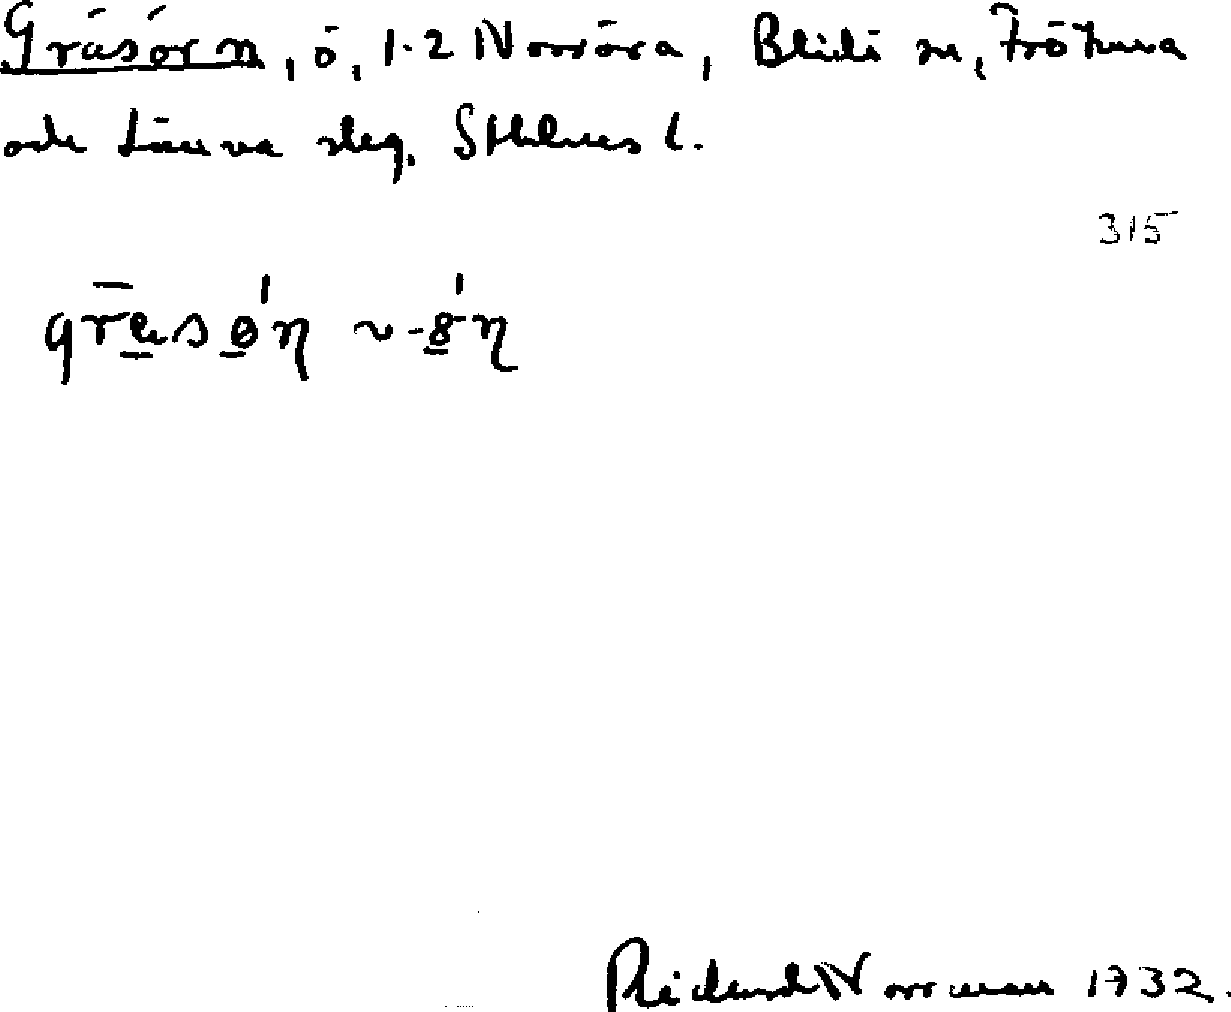 Gräsörn, ö, 1-2 Norröra, Blidö sn, Frötuna
och Länna skg, Sthlms l.
315
Rickard Norrman 1932.